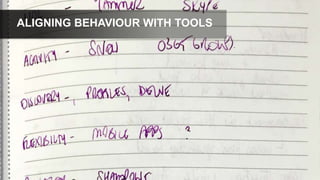 ALIGNING BEHAVIOUR WITH TOOLS
YAMMER SKYPE
ACTIVITY - SNOW
DISCOVERY -, PROFILES, DELVE
FLEXIBILITY - MOBILE APPS ?
SHADOWS